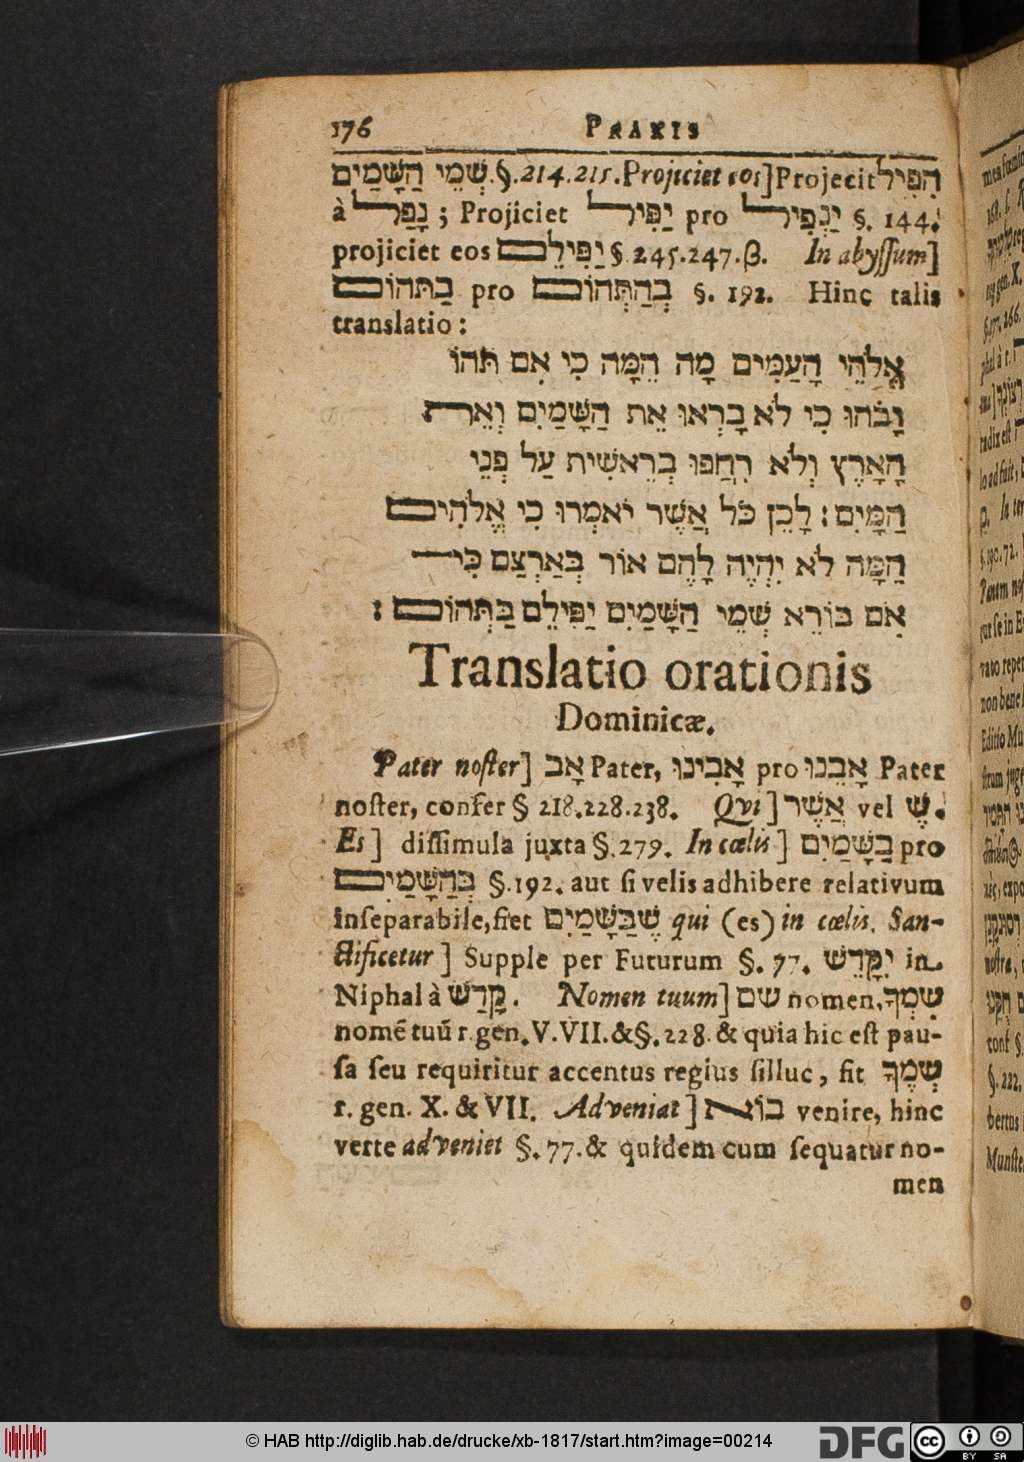 176 PRAXIS
שְׁמֵי הַשָּׁמַיִם §.214.215. Projiciet eos] Projecit הִפִּיל
à נָפַל ; Projiciet יַפִּיל pro יַנְפִּיל §. 144.
projiciet eos יַפִּילֵם § 245.247.β. In abyſſum]
בַּתּהוֹם pro בְּהַתְּהוֹם §. 192. Hinc talis
translatio:
אֱלֹהֵי הָעַמִּים מָה הֵמָּה כִּי אִם תֹּהוּ
וָבֹהוּ כִּי לֹא בָרְאוּ אֵת הַשָּׁמַיִם וְאֵת
הָאָרֶץ וְלֹא רִחֲפוּ בְּרֵאשִׁית עַל פְּנֵי
הַמָּיִם : לָכֵן כֹּל אֲשֶׁר יֹאמְרוּ כִּי אֱלֹהִים
הֵמָּה לֹא יִהְיֶה לָהֶם אוֹר בְּאַרְצָם כִּי
אִם בּוֹרֵא שְׁמֵי הַשָּׁמַיִם יַפִּילֵם בַּתְּהוֹם :
Translatio orationis
Dominicæ.
Pater noſter] אָב Pater, אָבִינוּ pro אָבֵנוּ Pater
noſter, confer § 218.228.238. Qvi] אֲשֶׁר vel שֶׁ.
Es] diſſimula juxta §.279. In cœlis] בַּשָּׁמַיִם pro
בְּהַשָּׁמַיִם §.192. aut ſi velis adhibere relativum
inſeparabile, fiet שֶׁבַּשָּׁמַיִם qui (es) in cœlis. San-
ctificetur] Supple per Futurum §. 77. יִקָּדֵשׁ in
Niphal à קָדַשׁ. Nomen tuum] שם nomen, שִׁמְךָ
nomẽ tuũ r. gen. V. VII. & §. 228. & quia hic eſt pau-
ſa ſeu requiritur accentus regius ſilluc, fit שְׁמֶךָ
r. gen. X. & VII. Adveniat] בוֹא venire, hinc
verte adveniet §. 77. & quidem cum ſequatur no-
men
© HAB http://diglib.hab.de/drucke/xb-1817/start.htm?image=00214
DFG
cc BY SA